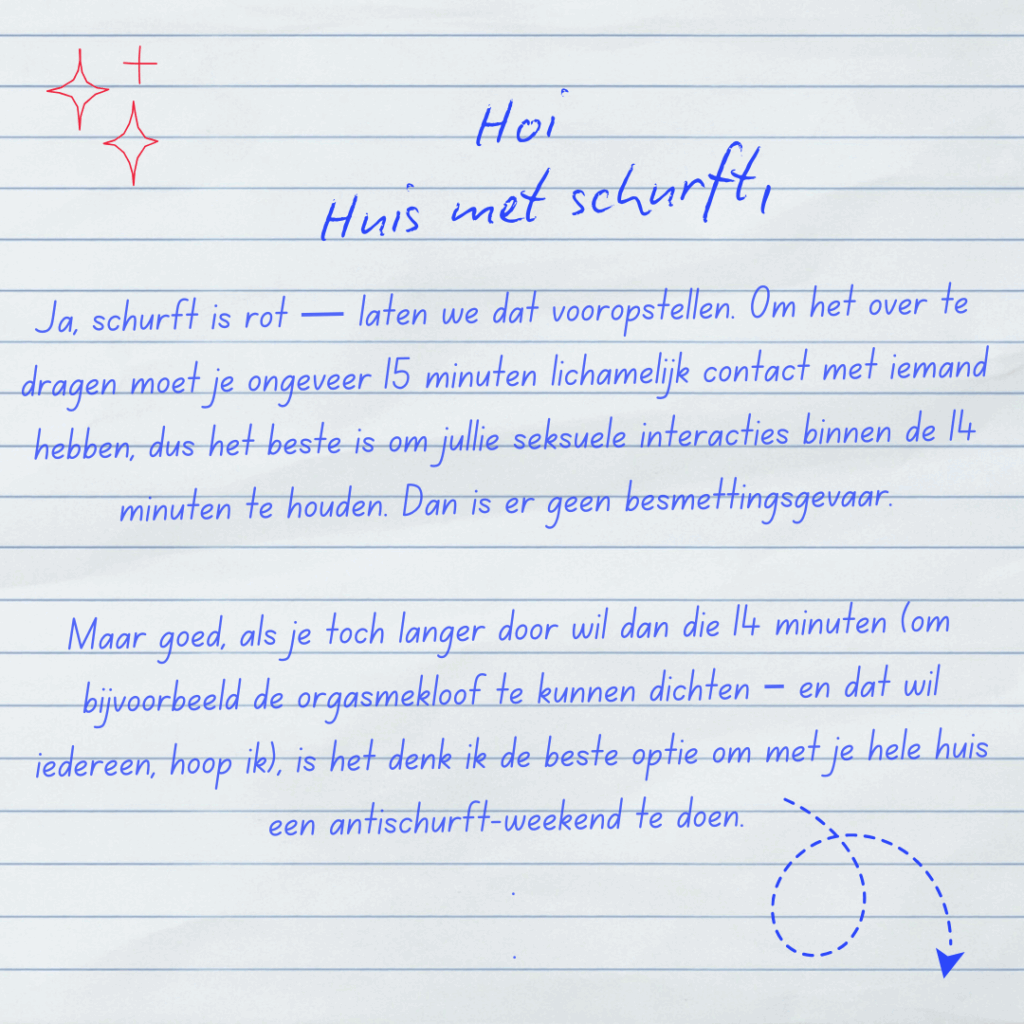 Hoi
Huis met schurft,
Ja, schurft is rot — laten we dat vooropstellen. Om het over te
dragen moet je ongeveer 15 minuten lichamelijk contact met iemand
hebben, dus het beste is om jullie seksuele interacties binnen de 14
minuten te houden. Dan is er geen besmettingsgevaar.
Maar goed, als je toch langer door wil dan die 14 minuten (om
bijvoorbeeld de orgasmekloof te kunnen dichten – en dat wil
iedereen, hoop ik), is het denk ik de beste optie om met je hele huis
een antischurft-weekend te doen.
.
.